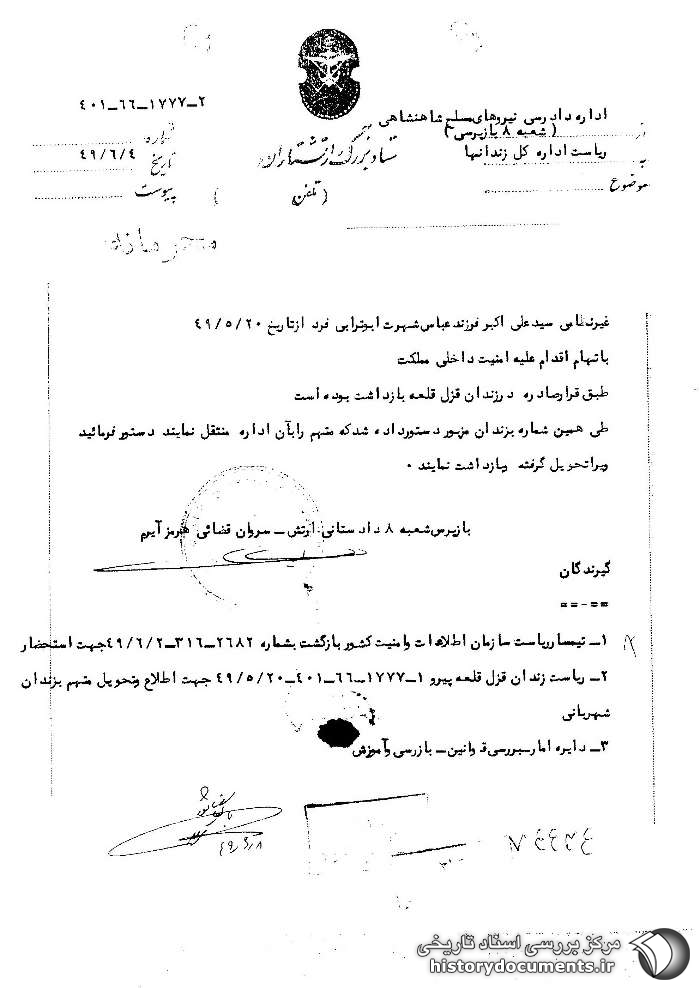 ۲ــ۱۷۷۷ــ۶۶ــ۴۰۱
اداره دادرسی نیروهای مسلح شاهنشاهی
از ( شعبه ۸ بازپرسی )
به ریاست اداره کل زندانها
موضوع
ستاد بزرگ ارتشتاران
شماره
تاریخ ۴۹/۶/۴
پیوست
( تلفن )
محرمانه
غیرنظامی سید علی اکبر فرزند عباس شهرت ابوترابی فرد از تاریخ ۴۹/۵/۲۰
باتهام اقدام علیه امنیت داخلی مملکت
طبق قرارصادره درزندان قزل قلعه بازداشت بوده است
طی همین شماره بزندان مزبور دستورداده شدکه متهم رابآن اداره منتقل نمایند دستور فرمائید
ویراتحویل گرفته وبازداشت نمایند ۰
بازپرس شعبه ۸ دادستانی ارتش ــ سروان قضائی هرمز آیرم
گیرندگان
==-==
۱ــ تیمسارریاست سازمان اطلاعات وامنیت کشور بازگشت بشماره ۲۶۸۲ــ۳۱۶ــ۴۹/۶/۲جهت استحضار
۲ــ ریاست زندان قزل قلعه پیرو ۱ــ۱۷۷۷ــ۶۶ــ۴۰۱ــ۴۹/۵/۲۰ جهت اطلاع وتحویل متهم بزندان
شهربانی
۳ــ دایره امارسبررسی قوانین ــ بازرسی وآموزش
۴۹/۶/۸
مرکز بررسی اسناد تاریخی
historydocuments.ir